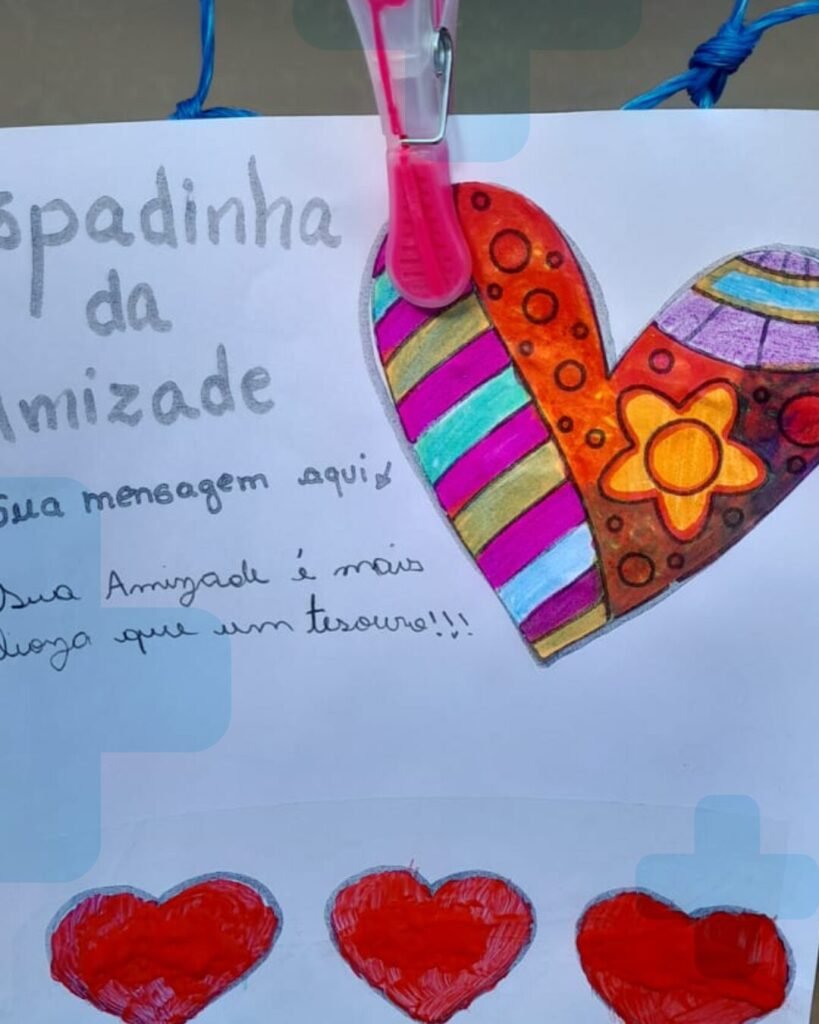 spadinha
da
Amizade
Sua mensagem aqui
Sua Amizade é mais
que um tesouro!!!